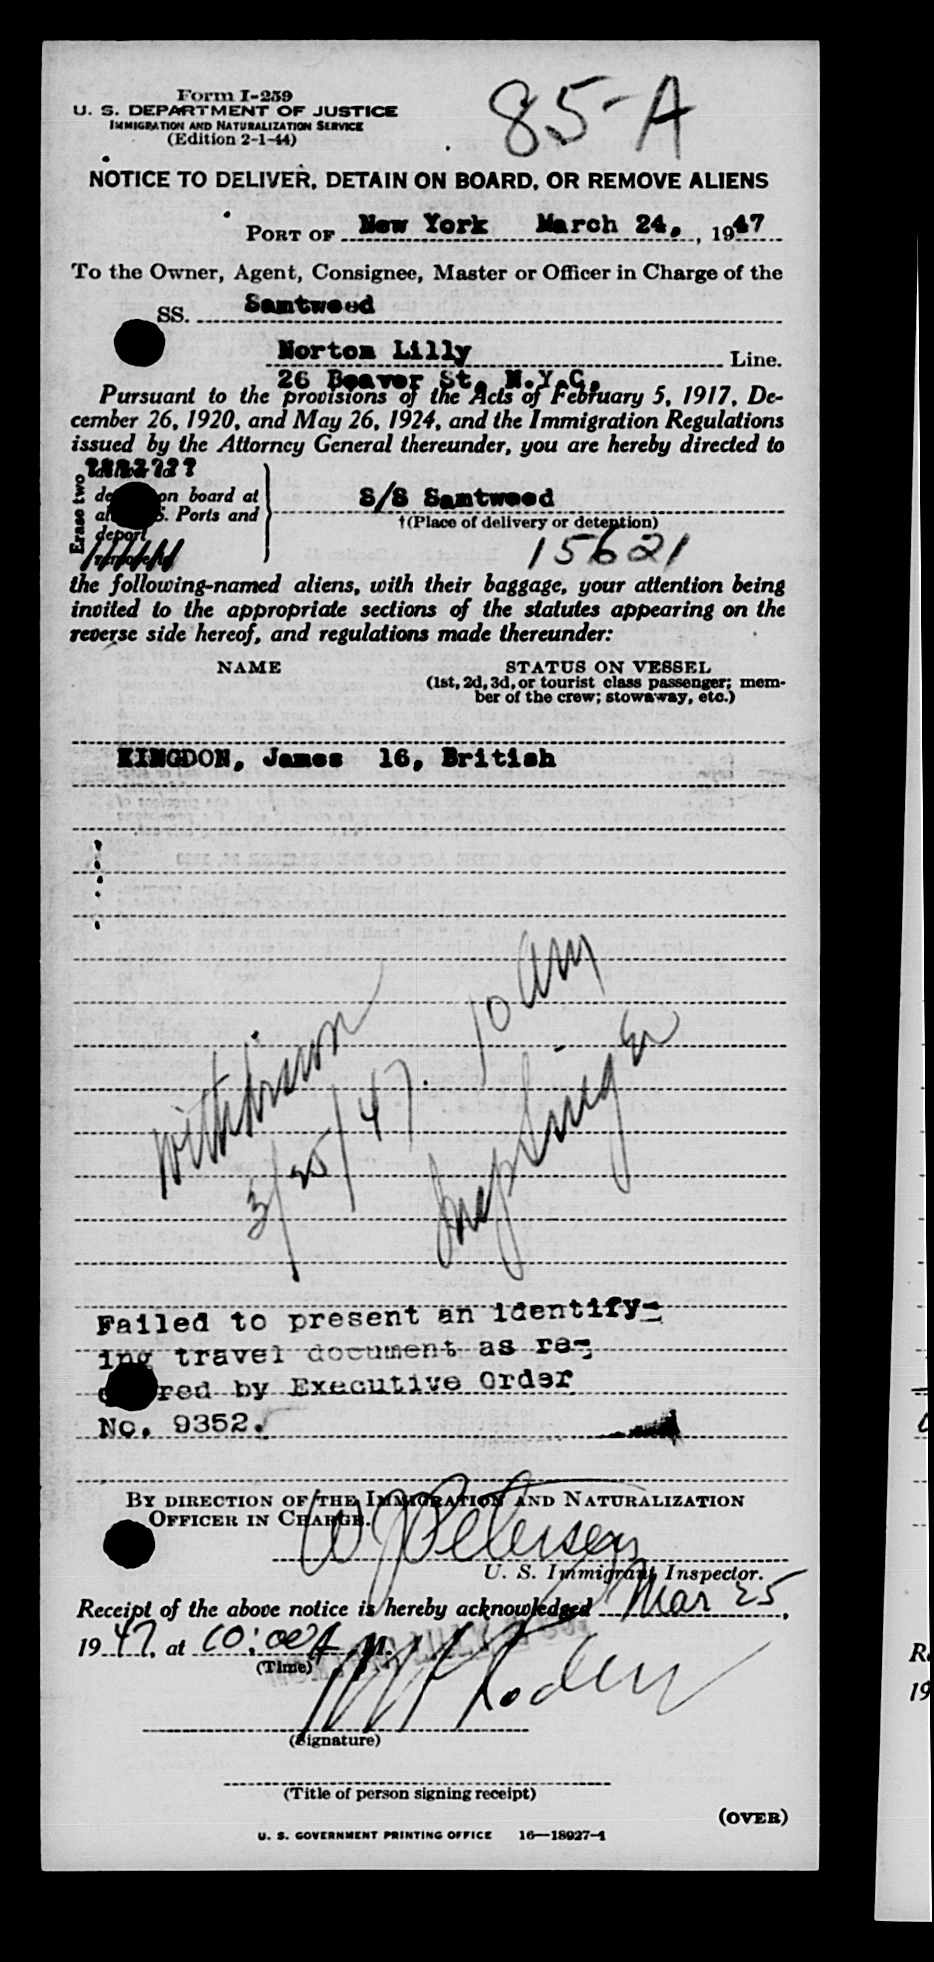 Form I-259
U. S. DEPARTMENT OF JUSTICE
IMMIGRATION AND NATURALIZATION SERVICE
(Edition 2-1-44)
85-A
NOTICE TO DELIVER, DETAIN ON BOARD, OR REMOVE ALIENS
PORT OF New York March 24, , 1947
To the Owner, Agent, Consignee, Master or Officer in Charge of the
SS. Samtweed
Norton Lilly Line.
26 Beaver St. N.Y.C.
Pursuant to the provisions of the Acts of February 5, 1917, De-
cember 26, 1920, and May 26, 1924, and the Immigration Regulations
issued by the Attorney General thereunder, you are hereby directed to
Erase two
on board at
S. Ports and
deport
remove to
S/S Samtweed
†(Place of delivery or detention)
15621
the following-named aliens, with their baggage, your attention being
invited to the appropriate sections of the statutes appearing on the
reverse side hereof, and regulations made thereunder:
NAME STATUS ON VESSEL
(1st, 2d, 3d, or tourist class passenger; mem-
ber of the crew; stowaway, etc.)
KINGDON, James 16, British
withdrawn 10 am
3/25/47.
Insp Singer
Failed to present an identify-
ing travel document as re-
red by Executive Order
No. 9352.
BY DIRECTION OF THE IMMIGRATION AND NATURALIZATION
OFFICER IN CHARGE.
W J Petersen
U. S. Immigrant Inspector.
Receipt of the above notice is hereby acknowledged Mar 25,
1947, at 10:00 A M.
(Time)
(Signature)
(Title of person signing receipt)
(OVER)
U. S. GOVERNMENT PRINTING OFFICE 16—18927-1
R
19